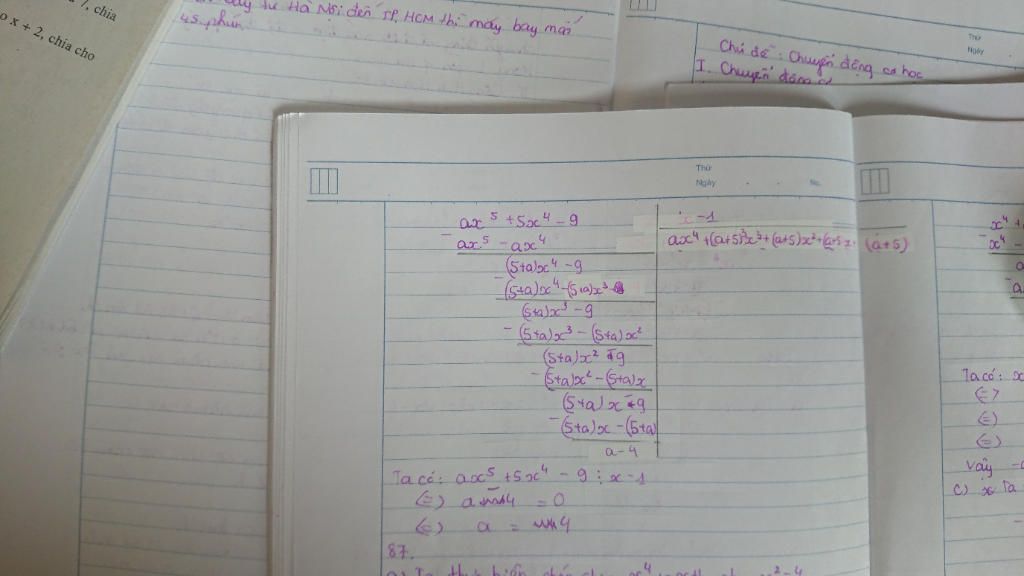 7, chia
o x + 2, chia cho
bay từ Hà Nội đến TP. HCM thì máy bay mất
45 phút
Thứ
Ngày
Chủ đề: Chuyển động cơ học
I. Chuyển động cơ
Thứ
Ngày No.
ax⁵ + 5x⁴ - 9
x - 1
- ax⁵ - ax⁴
ax⁴ + (a+5)x³ + (a+5)x² + (a+5)x + (a+5)
(5+a)x⁴ - 9
- (5+a)x⁴ - (5+a)x³
(5+a)x³ - 9
- (5+a)x³ - (5+a)x²
(5+a)x² - 9
- (5+a)x² - (5+a)x
(5+a)x - 9
- (5+a)x - (5+a)
a - 4
Ta có: ax⁵ + 5x⁴ - 9 ⋮ x - 1
(=) a - 4 = 0
(=) a = 4
87.
x⁴ +
- x⁴ -
Ta có: x
(=)
(=)
(=)
Vậy
c) Ta